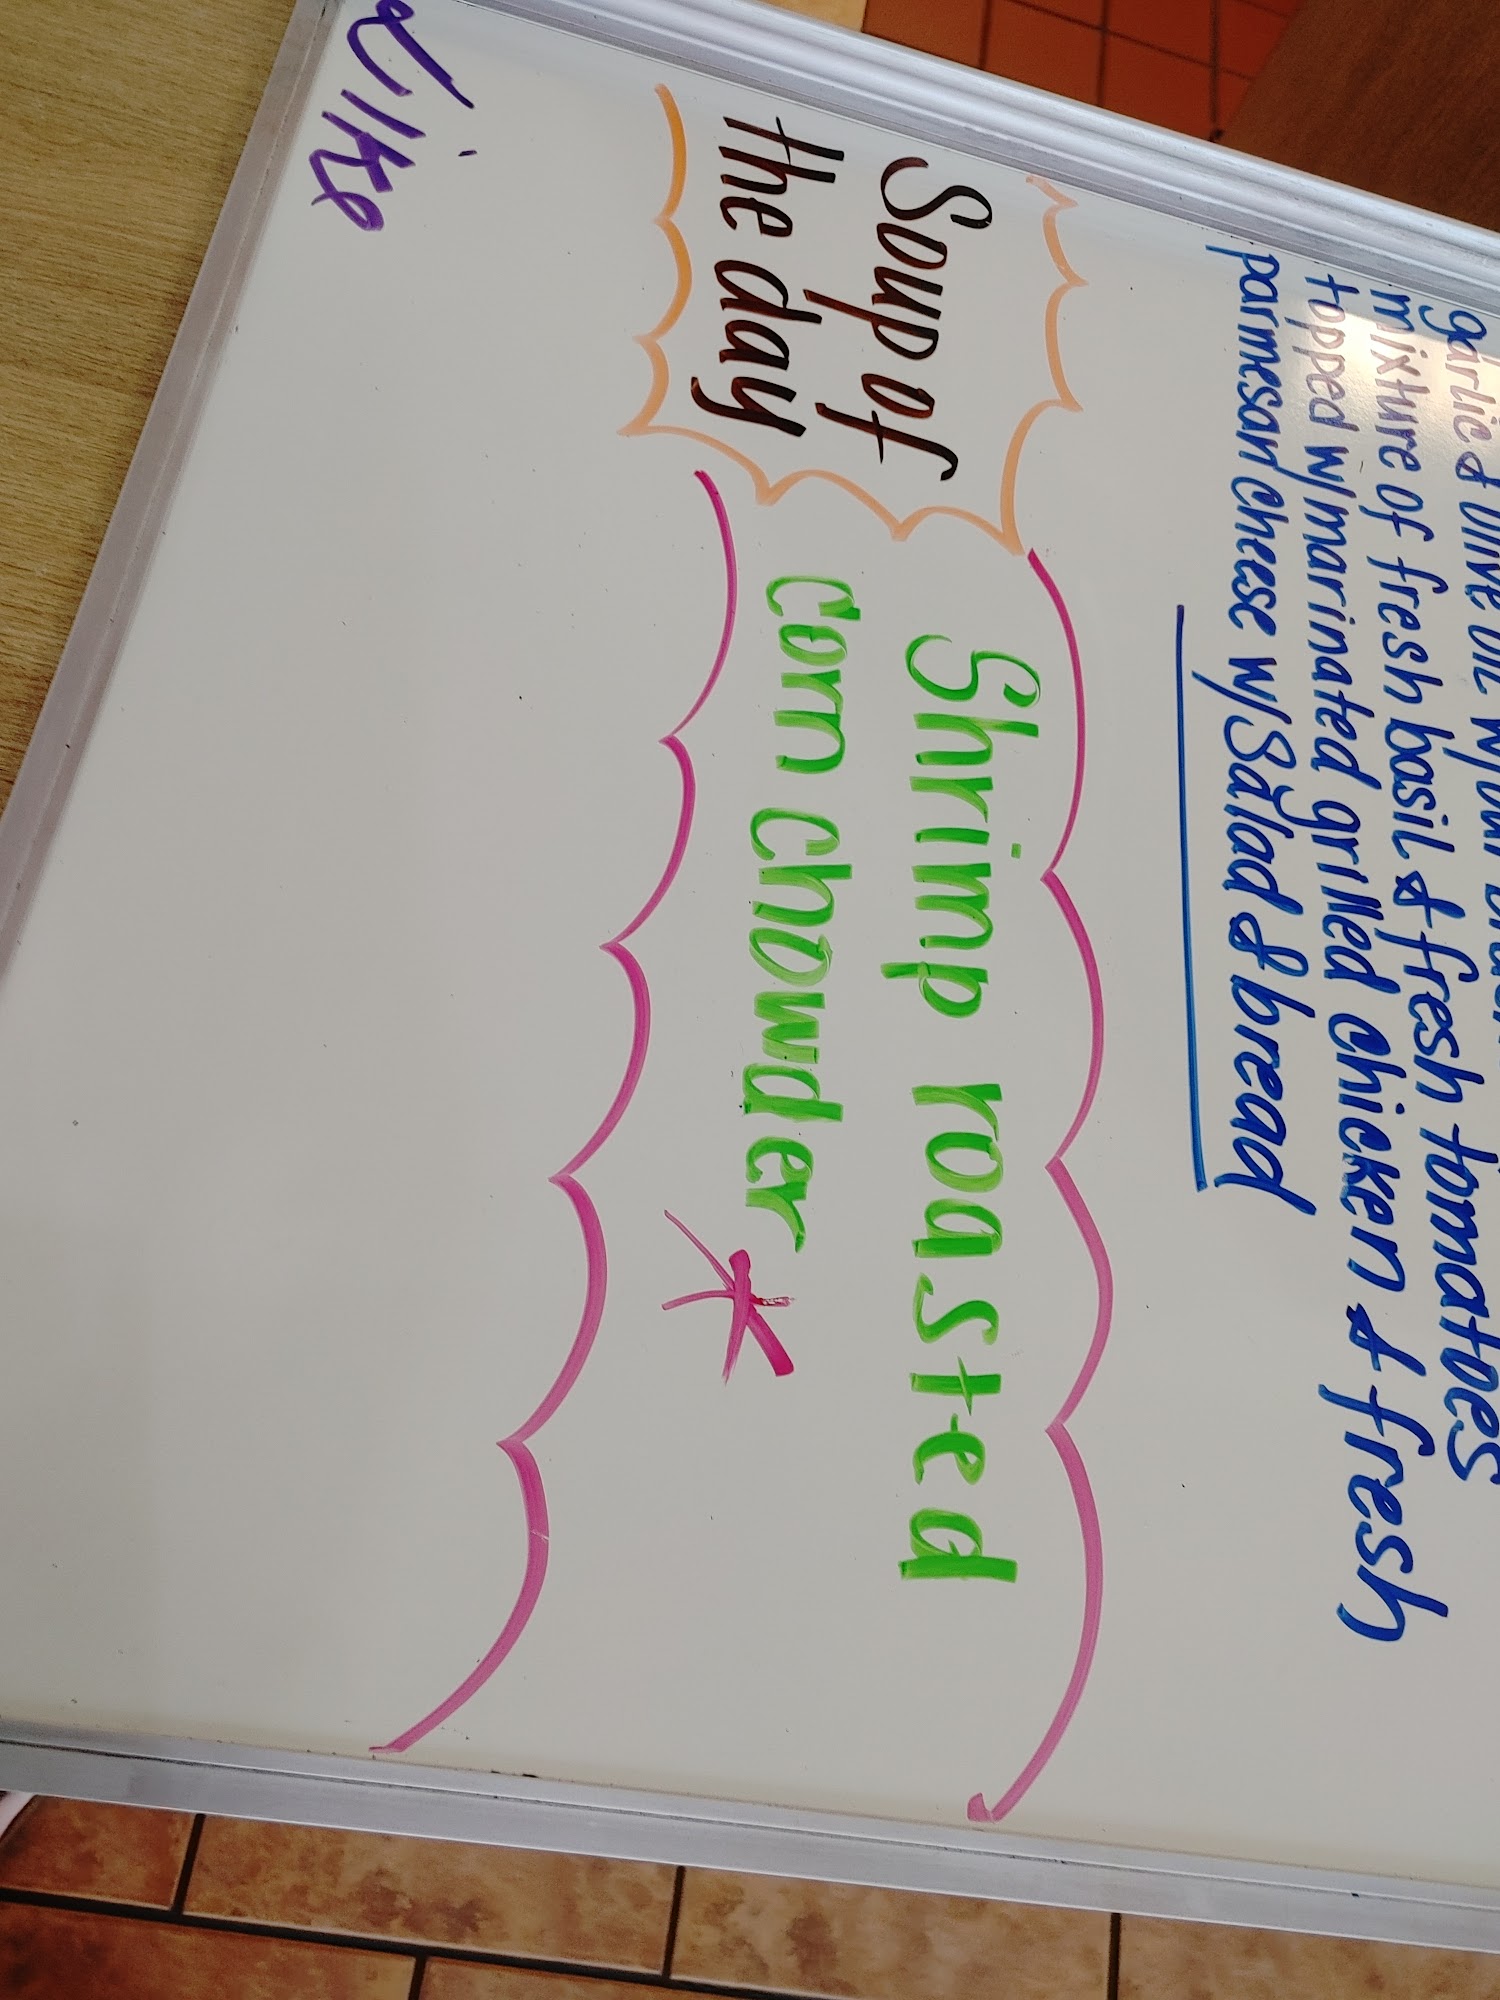 garlic & olive oil w/our
mixture of fresh basil & fresh tomatoes
topped w/marinated grilled chicken & fresh
parmesan cheese w/Salad & bread
Soup of
the day
Shrimp roasted
corn chowder